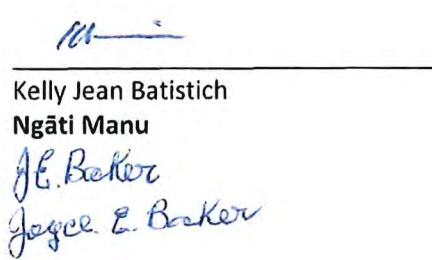 Kelly Jean Batistich
Ngāti Manu
J.E. Baker
Joyce E. Baker